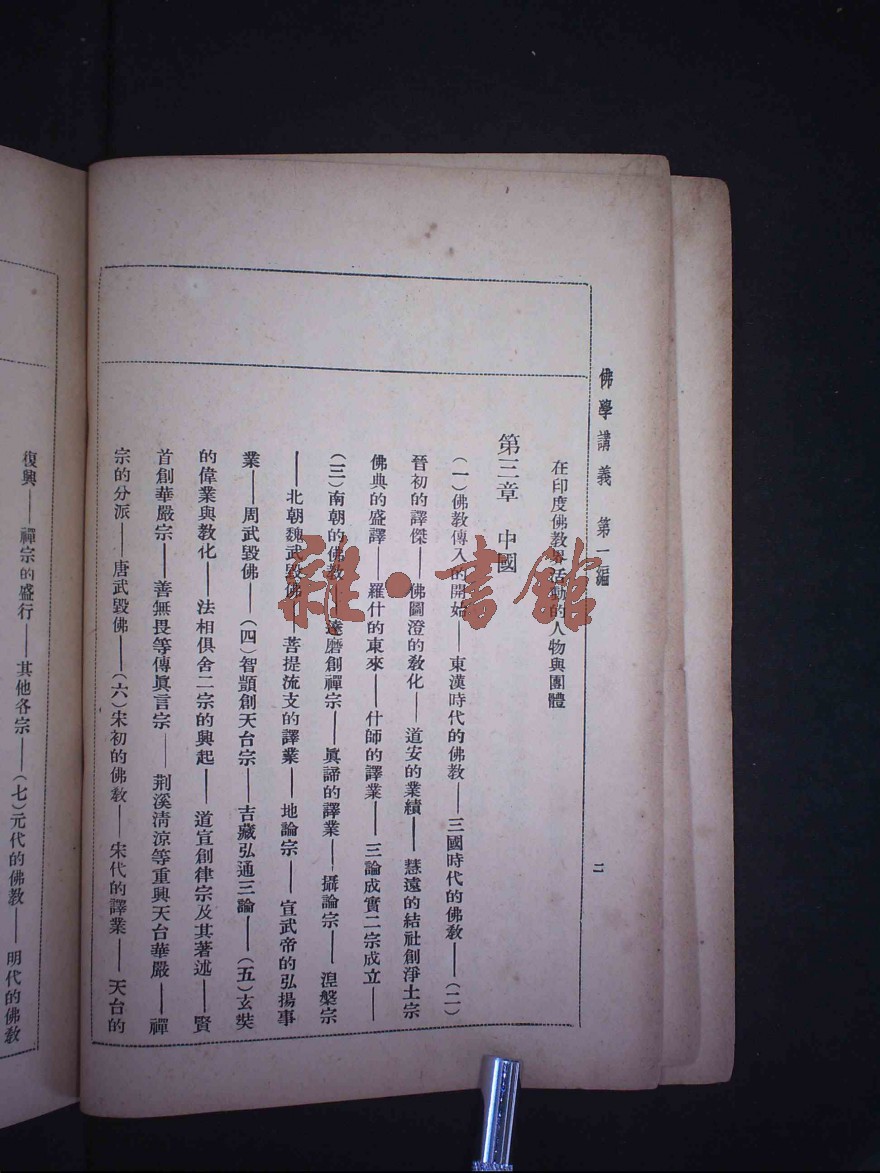 佛學講義 第一編
二
在印度佛教界活動的人物與團體
第三章 中國
(一)佛教傳入的開始——東漢時代的佛教——三國時代的佛教——(二)
晉初的譯傑——佛圖澄的教化——道安的業績——慧遠的結社創淨土宗
佛典的盛譯——羅什的東來——什師的譯業——三論成實二宗成立——
(三)南朝的佛教——達磨創禪宗——眞諦的譯業——攝論宗——涅槃宗
——北朝魏武毀佛——菩提流支的譯業——地論宗——宣武帝的弘揚事
業——周武毀佛——(四)智顗創天台宗——吉藏弘通三論——(五)玄奘
的偉業與教化——法相俱舍二宗的興起——道宣創律宗及其著述——賢
首創華嚴宗——善無畏等傳眞言宗——荆溪淸涼等重興天台華嚴——禪
宗的分派——唐武毀佛——(六)宋初的佛教——宋代的譯業——天台的
復興——禪宗的盛行——其他各宗——(七)元代的佛教——明代的佛教
雜·書館